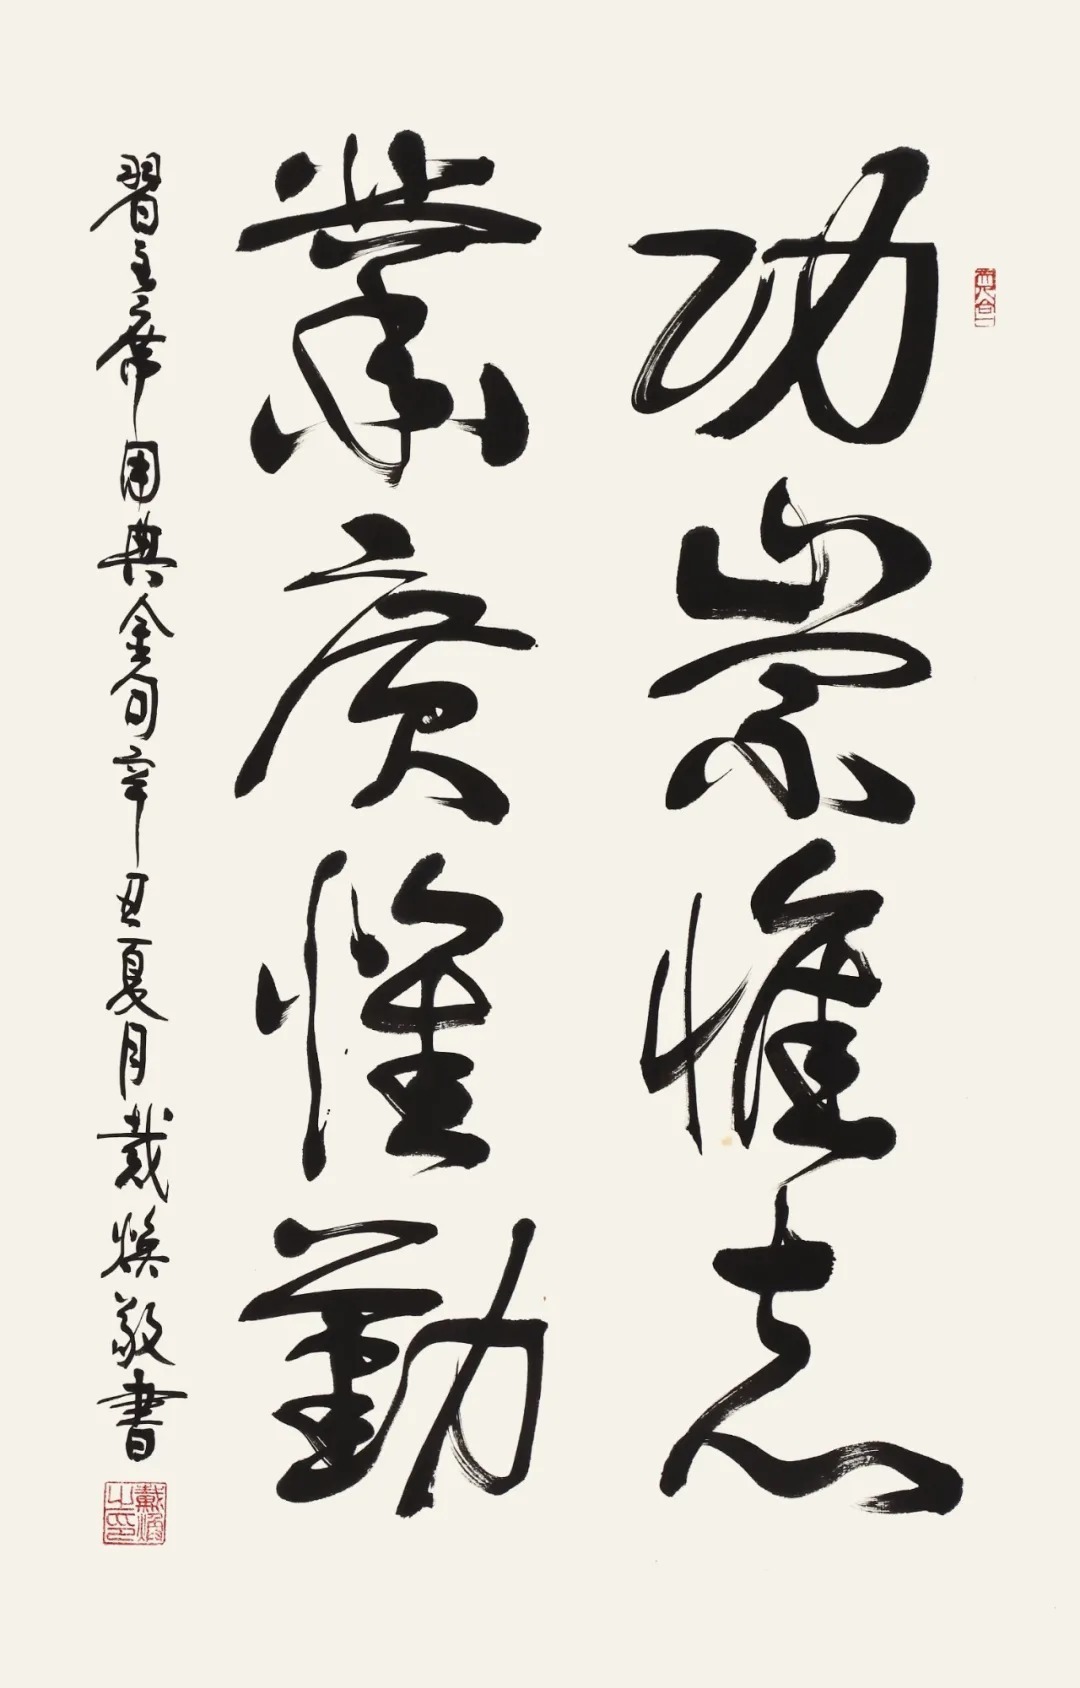 功崇惟志
業廣惟勤
習主席用典金句辛丑夏月戴煥敬書
戴煥之印